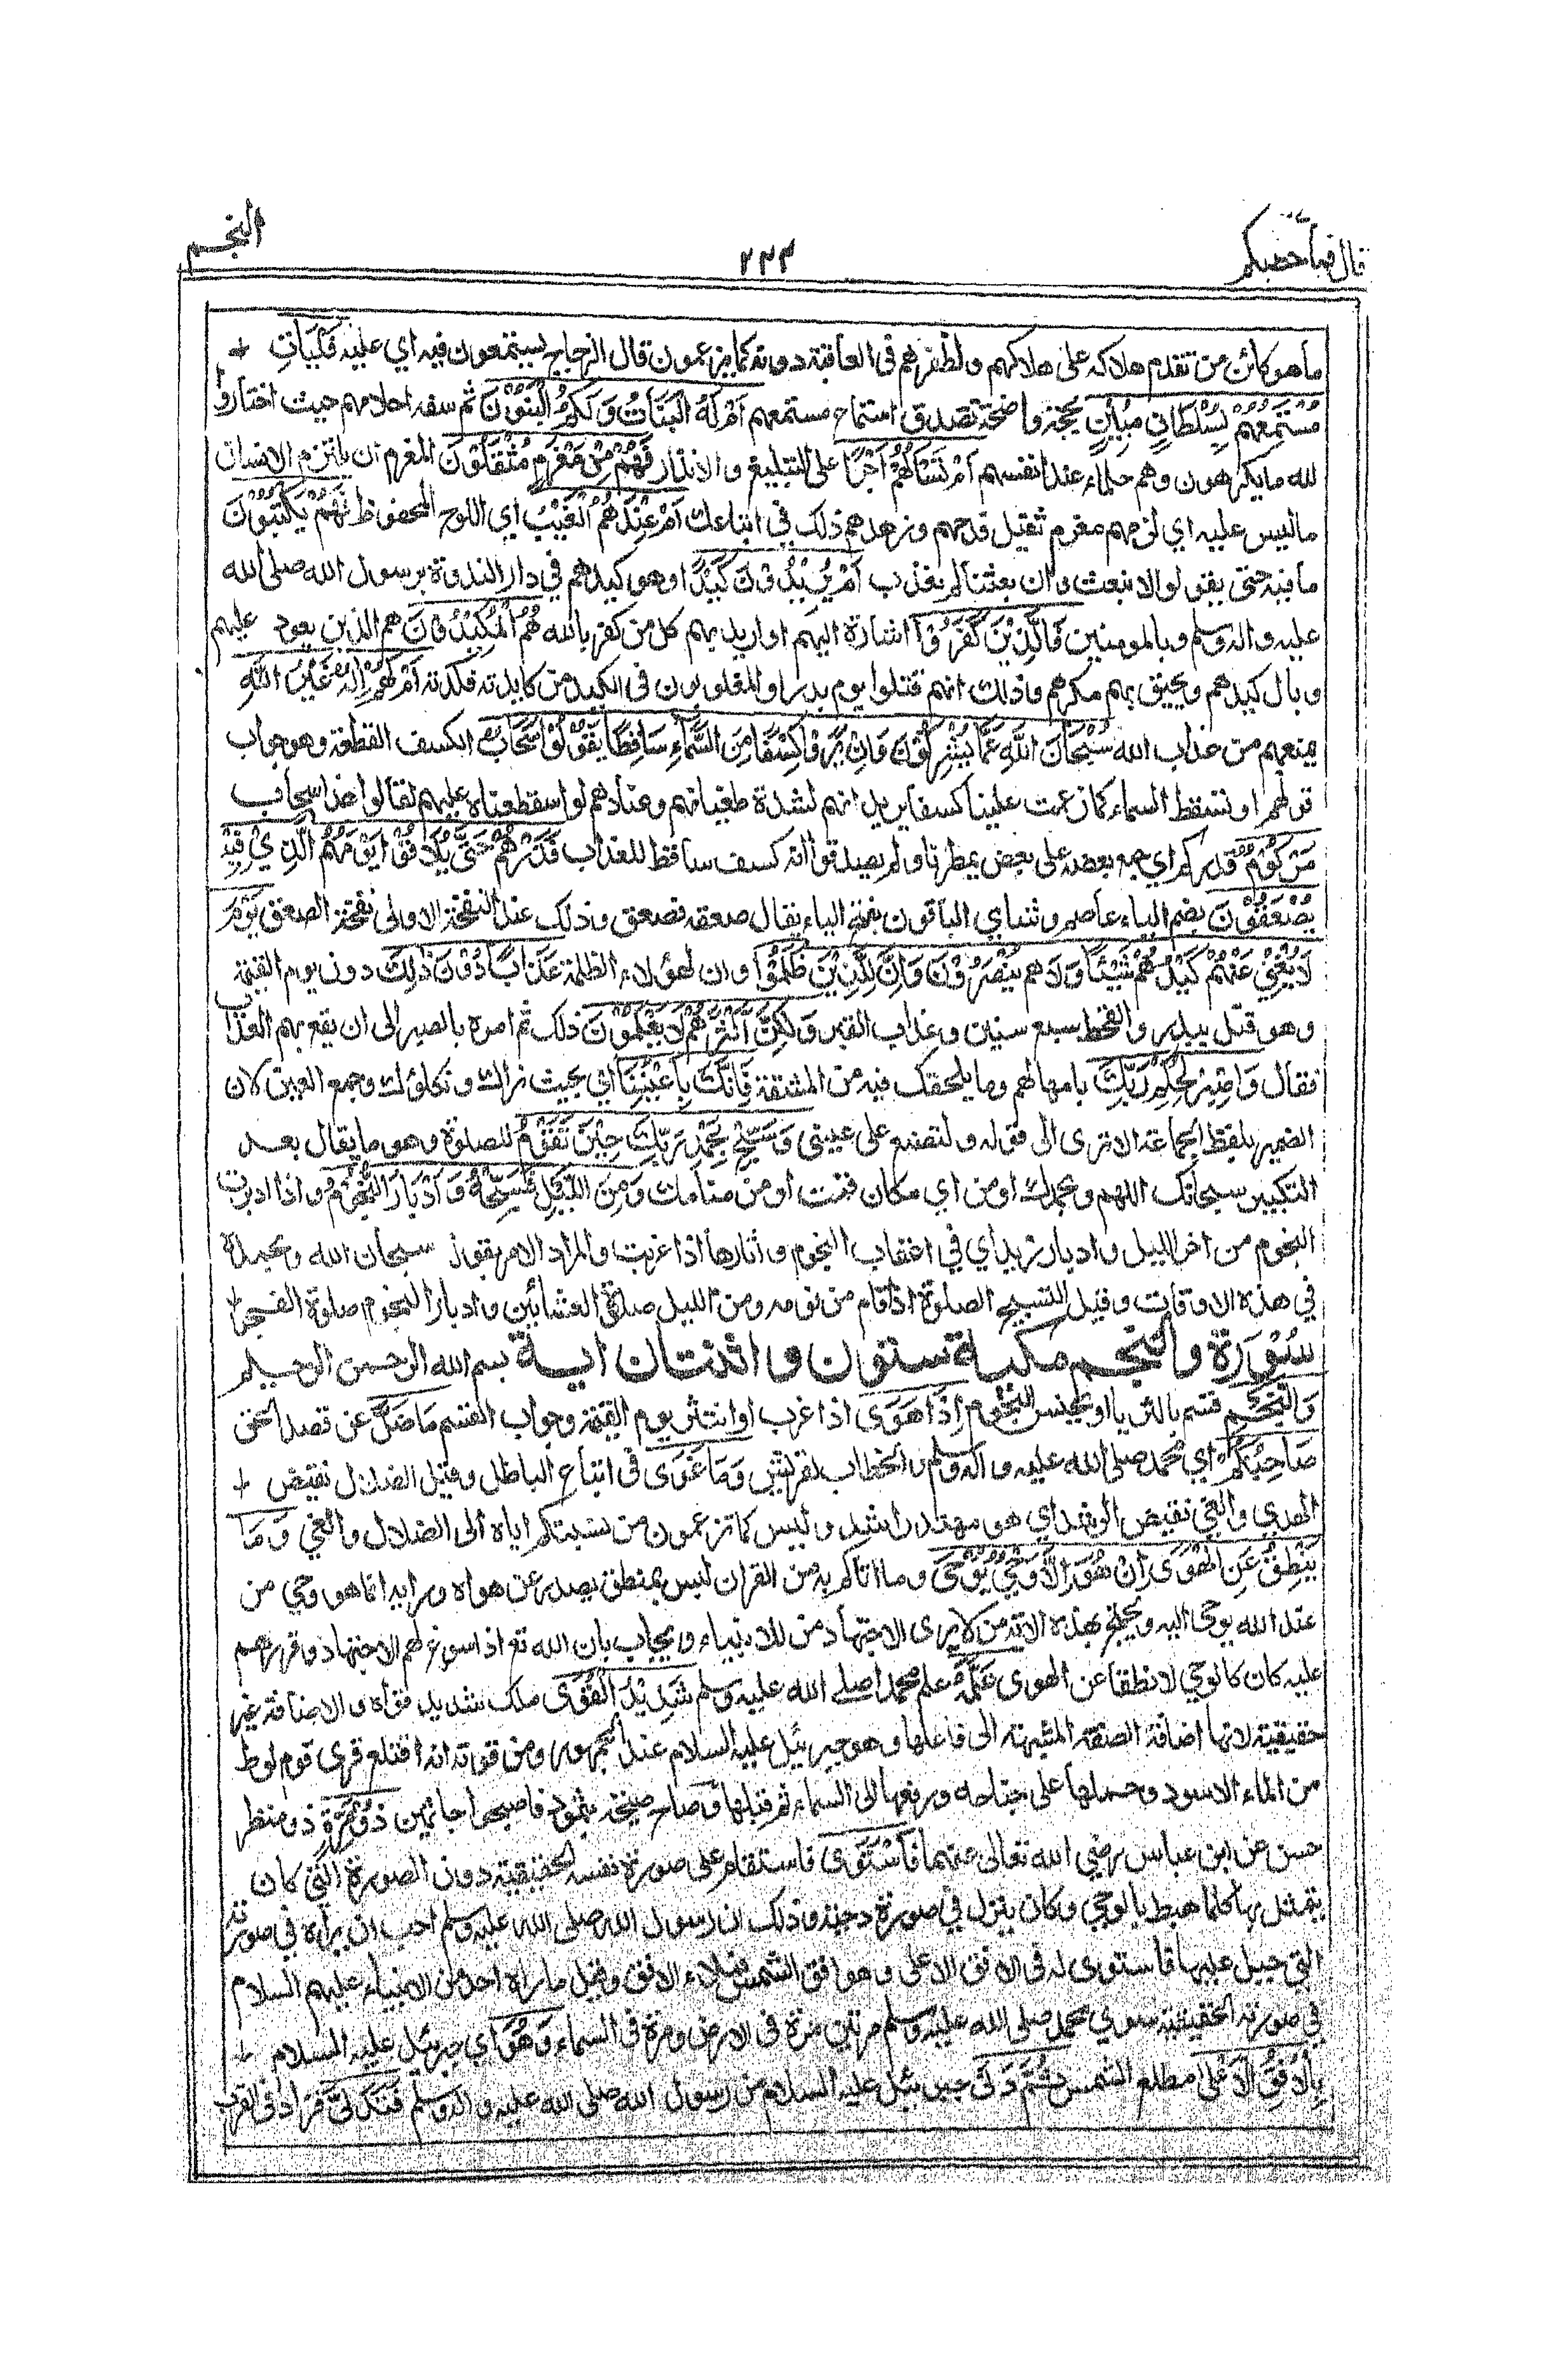 قال فما خطبكم
٢٣٣
النجم
ما هو كائن من تقدم هلاكه على هلاكهم ولظفرهم في العاقبة دونه كما يزعمون قال الزجاج يستمعون فيه اي عليه فَلْيَأْتِ
مُسْتَمِعُهُمْ بِسُلْطَانٍ مُبِيْنٍ بحجة واضحة تصدق استماع مستمعهم اَمْ لَهُ الْبَنَاتُ وَلَكُمُ الْبَنُوْنَ ثم سفه احلامهم حيث اختاروا
لله ما يكرهون وهم حلماء عند انفسهم اَمْ تَسْاَلُهُمْ اَجْرًا على التبليغ والانذار فَهُمْ مِنْ مَغْرَمٍ مُثْقَلُوْنَ المغرم ان يلتزم الانسان
ما ليس عليه اي لزمهم مغرم ثقيل فدحهم وزهدهم ذلك في اتباعك اَمْ عِنْدَهُمُ الْغَيْبُ اي اللوح المحفوظ فَهُمْ يَكْتُبُوْنَ
ما فيه حتى يقولوا لا نبعث وان بعثنا لم نعذب اَمْ يُرِيْدُوْنَ كَيْدًا وهو كيدهم في دار الندوة برسول الله صلى الله
عليه واله وسلم وبالمومنين فَالَّذِيْنَ كَفَرُوْا اشارة اليهم او اريد بهم كل من كفر بالله هُمُ الْمَكِيْدُوْنَ هم الذين يعود عليهم
وبال كيدهم ويحيق بهم مكرهم وذلك انهم قتلوا يوم بدر او المغلوبون في الكيد من كايدته فكدته اَمْ لَهُمْ اِلٰهٌ غَيْرُ اللّٰهِ
يمنعهم من عذاب الله سُبْحَانَ اللّٰهِ عَمَّا يُشْرِكُوْنَ وَاِنْ يَرَوْا كِسْفًا مِنَ السَّمَاءِ سَاقِطًا يَقُوْلُوْا سَحَابٌ الكسف القطعة وهو جواب
قولهم او تسقط السماء كما زعمت علينا كسفا يريد انهم لشدة طغيانهم وعنادهم لو اسقطناه عليهم لقالوا هذا سحاب
مَرْكُوْمٌ قد ركم اي جمع بعضه على بعض يمطرنا ولم يصدقوا انه كسف ساقط للعذاب فَذَرْهُمْ حَتّٰى يُلَاقُوْا يَوْمَهُمُ الَّذِيْ فِيْهِ
يُصْعَقُوْنَ بضم الياء عاصم وشامي الباقون بفتح الياء يقال صعقه فصعق وذلك عند النفخة الاولى نفخة الصعق يَوْمَ
لَا يُغْنِيْ عَنْهُمْ كَيْدُهُمْ شَيْئًا وَلَا هُمْ يُنْصَرُوْنَ وَاِنَّ لِلَّذِيْنَ ظَلَمُوْا وان لهؤلاء الظلمة عَذَابًا دُوْنَ ذٰلِكَ دون يوم القيمة
وهو قتل ببدر والقحط سبع سنين وعذاب القبر وَلٰكِنَّ اَكْثَرَهُمْ لَا يَعْلَمُوْنَ ذلك ثم امره بالصبر الى ان يقع بهم العذاب
فقال وَاصْبِرْ لِحُكْمِ رَبِّكَ بامهالهم وما يلحقك فيه من المشقة فَاِنَّكَ بِاَعْيُنِنَا اي بحيث نراك ونكلؤك وجمع العين لان
الضمير بلفظ الجماعة الا ترى الى قوله ولتصنع على عيني وَسَبِّحْ بِحَمْدِ رَبِّكَ حِيْنَ تَقُوْمُ للصلوة وهو ما يقال بعد
التكبير سبحانك اللهم وبحمدك او من اي مكان قمت او من منامك وَمِنَ اللَّيْلِ فَسَبِّحْهُ وَاِدْبَارَ النُّجُوْمِ واذا ادبرت
النجوم من اخر الليل وادبار زيد اي في اعقاب النجوم واثارها اذا غربت والمراد الامر بقول سبحان الله وبحمده
في هذه الاوقات وقيل التسبيح الصلوة اذا قام من نومه ومن الليل صلاة العشائين وادبار النجوم صلوة الفجر
سُوْرَة والنجم مكية ستون واثنتان اية بسم الله الرحمن الرحيم
وَالنَّجْمِ قسم بالثريا او بجنس النجوم اِذَا هَوٰى اذا غرب او انتثر يوم القيمة وجواب القسم مَا ضَلَّ عن قصد الحق
صَاحِبُكُمْ اي محمد صلى الله عليه واله وسلم والخطاب لقريش وَمَا غَوٰى في اتباع الباطل وقيل الضلال نقيض
الهدى والغي نقيض الرشد اي هو مهتد راشد وليس كما تزعمون من نسبتكم اياه الى الضلال والغي وَمَا
يَنْطِقُ عَنِ الْهَوٰى اِنْ هُوَ اِلَّا وَحْيٌ يُوْحٰى وما اتاكم به من القران ليس بمنطق يصدر عن هواه ورايه انما هو وحي من
عند الله يوحى اليه ويحتج بهذه الاية من لا يرى الاجتهاد من للانبياء ويجاب بان الله تع اذا سوغ لهم الاجتهاد وقررهم
عليه كان كالوحي لا نطقا عن الهوى عَلَّمَهُ علم محمدا صلى الله عليه وسلم شَدِيْدُ الْقُوٰى ملك شديد قواه والاضافة غير
حقيقية لانها اضافة الصفة المشبهة الى فاعلها وهو جبرئيل عليه السلام عند الجمهور ومن قوته انه اقتلع قرى قوم لوط
من الماء الاسود وحملها على جناحه ورفعها الى السماء ثم قلبها وصاح صيحة بثمود فاصبحوا جاثمين ذُوْ مِرَّةٍ ذو منظر
حسن عن ابن عباس رضي الله تعالى عنهما فَاسْتَوٰى فاستقام على صورة نفسه الحقيقية دون الصورة التي كان
يتمثل بها كلما هبط بالوحي وكان ينزل في صورة دحية وذلك ان رسول الله صلى الله عليه وسلم احب ان يراه في صورته
التي جبل عليها فاستوى له في الافق الاعلى وهو افق الشمس فملاء الافق وقيل ما راه احد من الانبياء عليهم السلام
في صورته الحقيقية سوى محمد صلى الله عليه وسلم مرتين مرة في الارض ومرة في السماء وَهُوَ اي جبرئيل عليه السلام
بِالْاُفُقِ الْاَعْلٰى مطلع الشمس ثُمَّ دَنٰى جبرئيل عليه السلام من رسول الله صلى الله عليه واله وسلم فَتَدَلّٰى فزاد في القرب